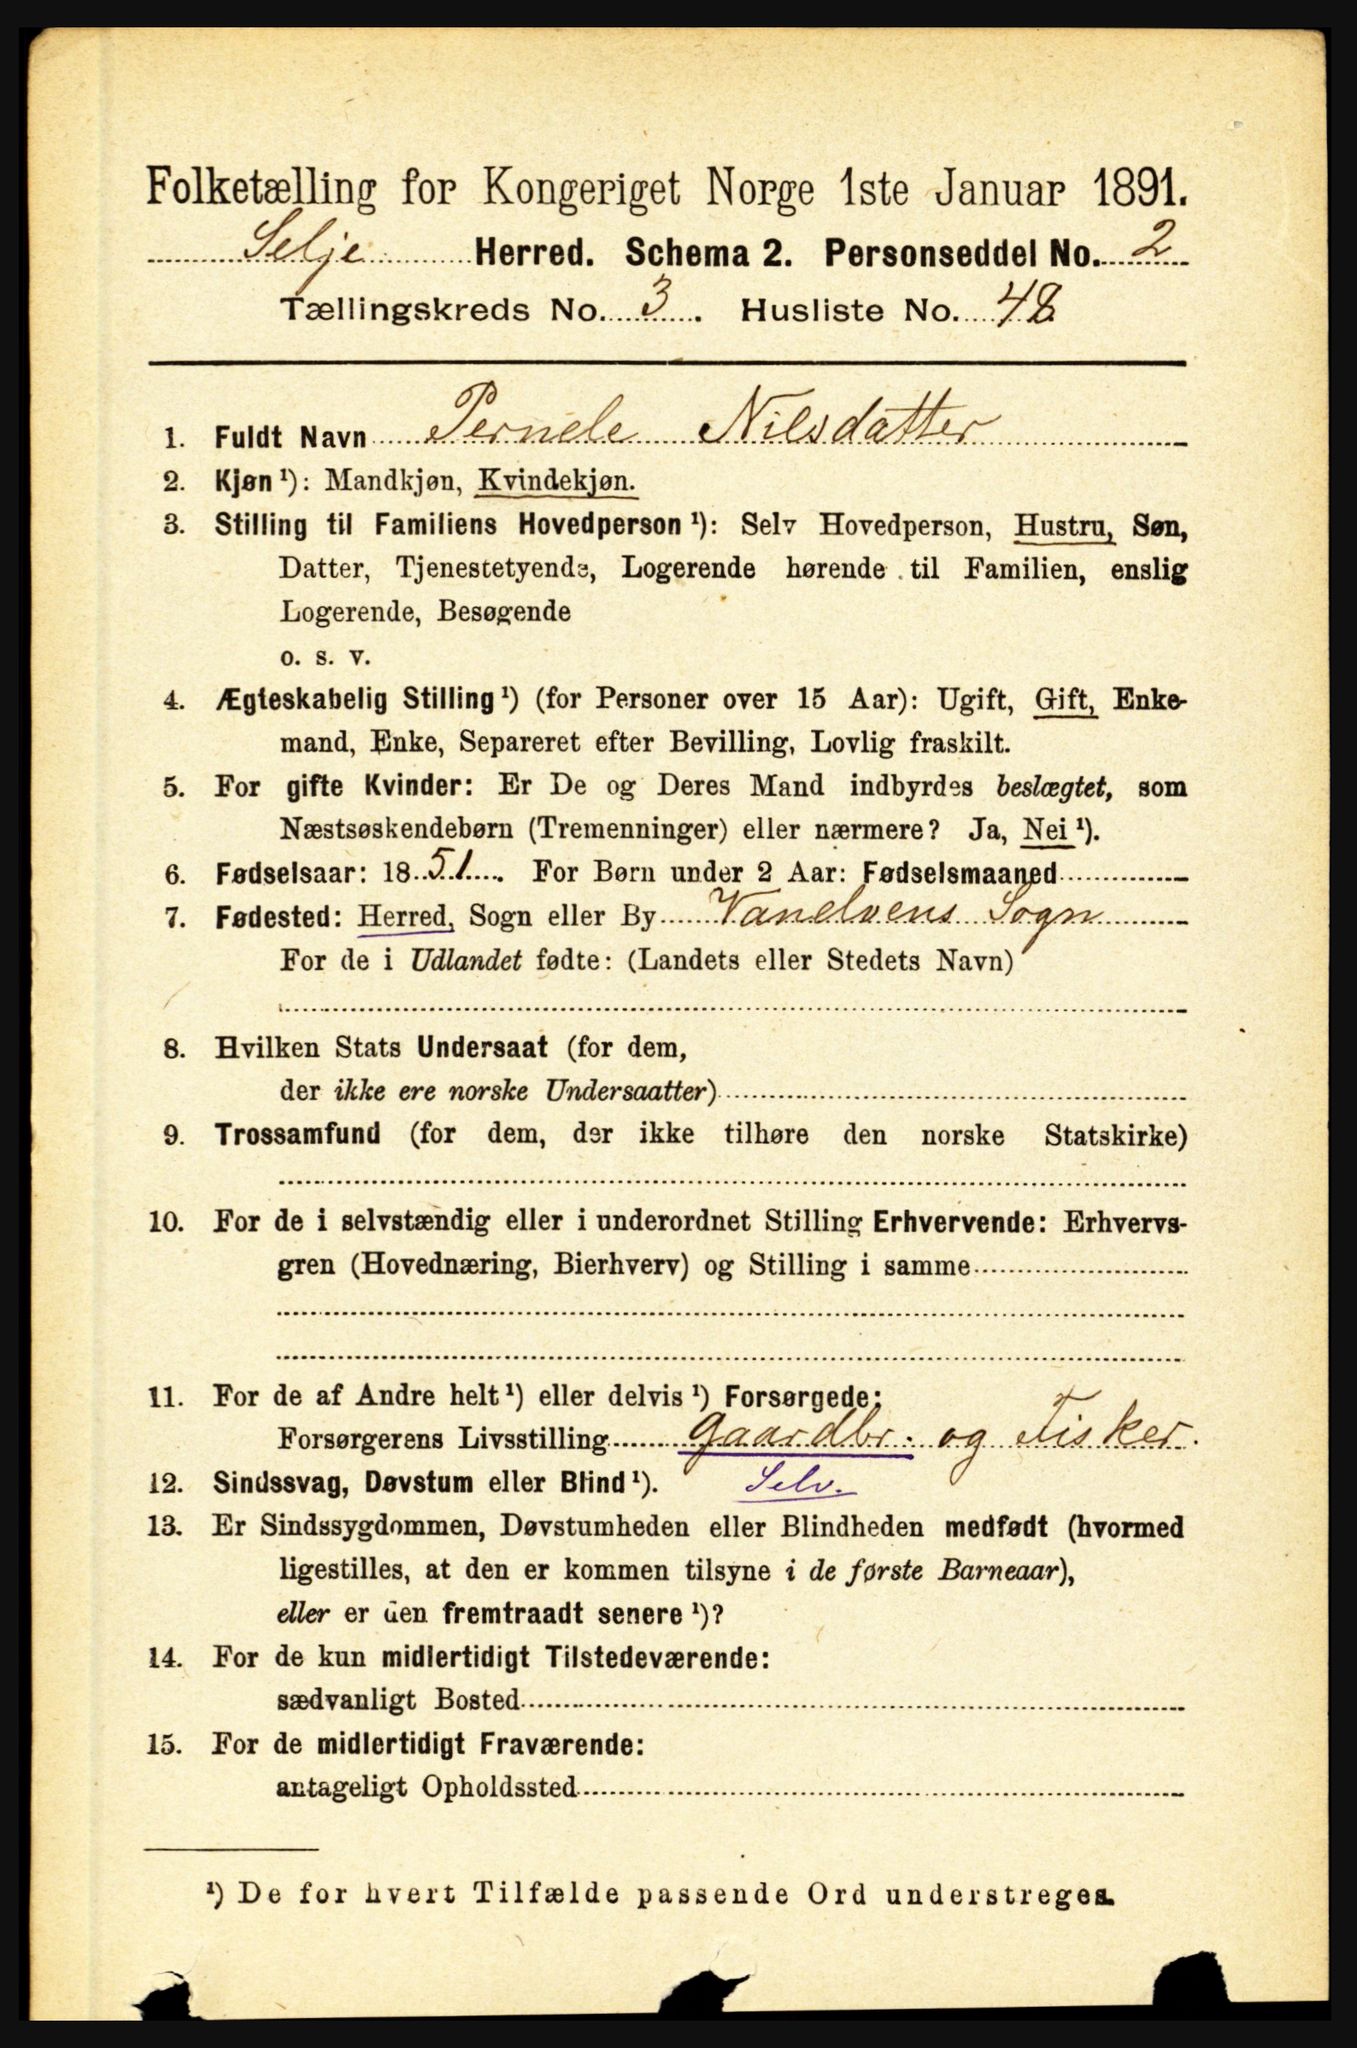 Folketælling for Kongeriget Norge 1ste Januar 1891.
Selje Herred. Schema 2. Personseddel No. 2
Tællingskreds No. 3. Husliste No. 48
1. Fuldt Navn Pernele Nilsdatter
2. Kjøn ¹): Mandkjøn, Kvindekjøn.
3. Stilling til Familiens Hovedperson ¹): Selv Hovedperson, Hustru, Søn,
Datter, Tjenestetyende, Logerende hørende til Familien, enslig
Logerende, Besøgende
o. s. v.
4. Ægteskabelig Stilling ¹) (for Personer over 15 Aar): Ugift, Gift, Enke-
mand, Enke, Separeret efter Bevilling, Lovlig fraskilt.
5. For gifte Kvinder: Er De og Deres Mand indbyrdes beslægtet, som
Næstsøskendebørn (Tremenninger) eller nærmere? Ja, Nei ¹).
6. Fødselsaar: 1851. For Børn under 2 Aar: Fødselsmaaned
7. Fødested: Herred, Sogn eller By Vanelvens Sogn
For de i Udlandet fødte: (Landets eller Stedets Navn)
8. Hvilken Stats Undersaat (for dem,
der ikke ere norske Undersaatter)
9. Trossamfund (for dem, der ikke tilhøre den norske Statskirke)
10. For de i selvstændig eller i underordnet Stilling Erhvervende: Erhvervs-
gren (Hovednæring, Bierhverv) og Stilling i samme
11. For de af Andre helt ¹) eller delvis ¹) Forsørgede:
Forsørgerens Livsstilling Gaardbr. og Fisker.
12. Sindssvag, Døvstum eller Blind ¹). Selv.
13. Er Sindssygdommen, Døvstumheden eller Blindheden medfødt (hvormed
ligestilles, at den er kommen tilsyne i de første Barneaar),
eller er den fremtraadt senere ¹)?
14. For de kun midlertidigt Tilstedeværende:
sædvanligt Bosted
15. For de midlertidigt Fraværende:
antageligt Opholdssted
¹) De for hvert Tilfælde passende Ord understreges.